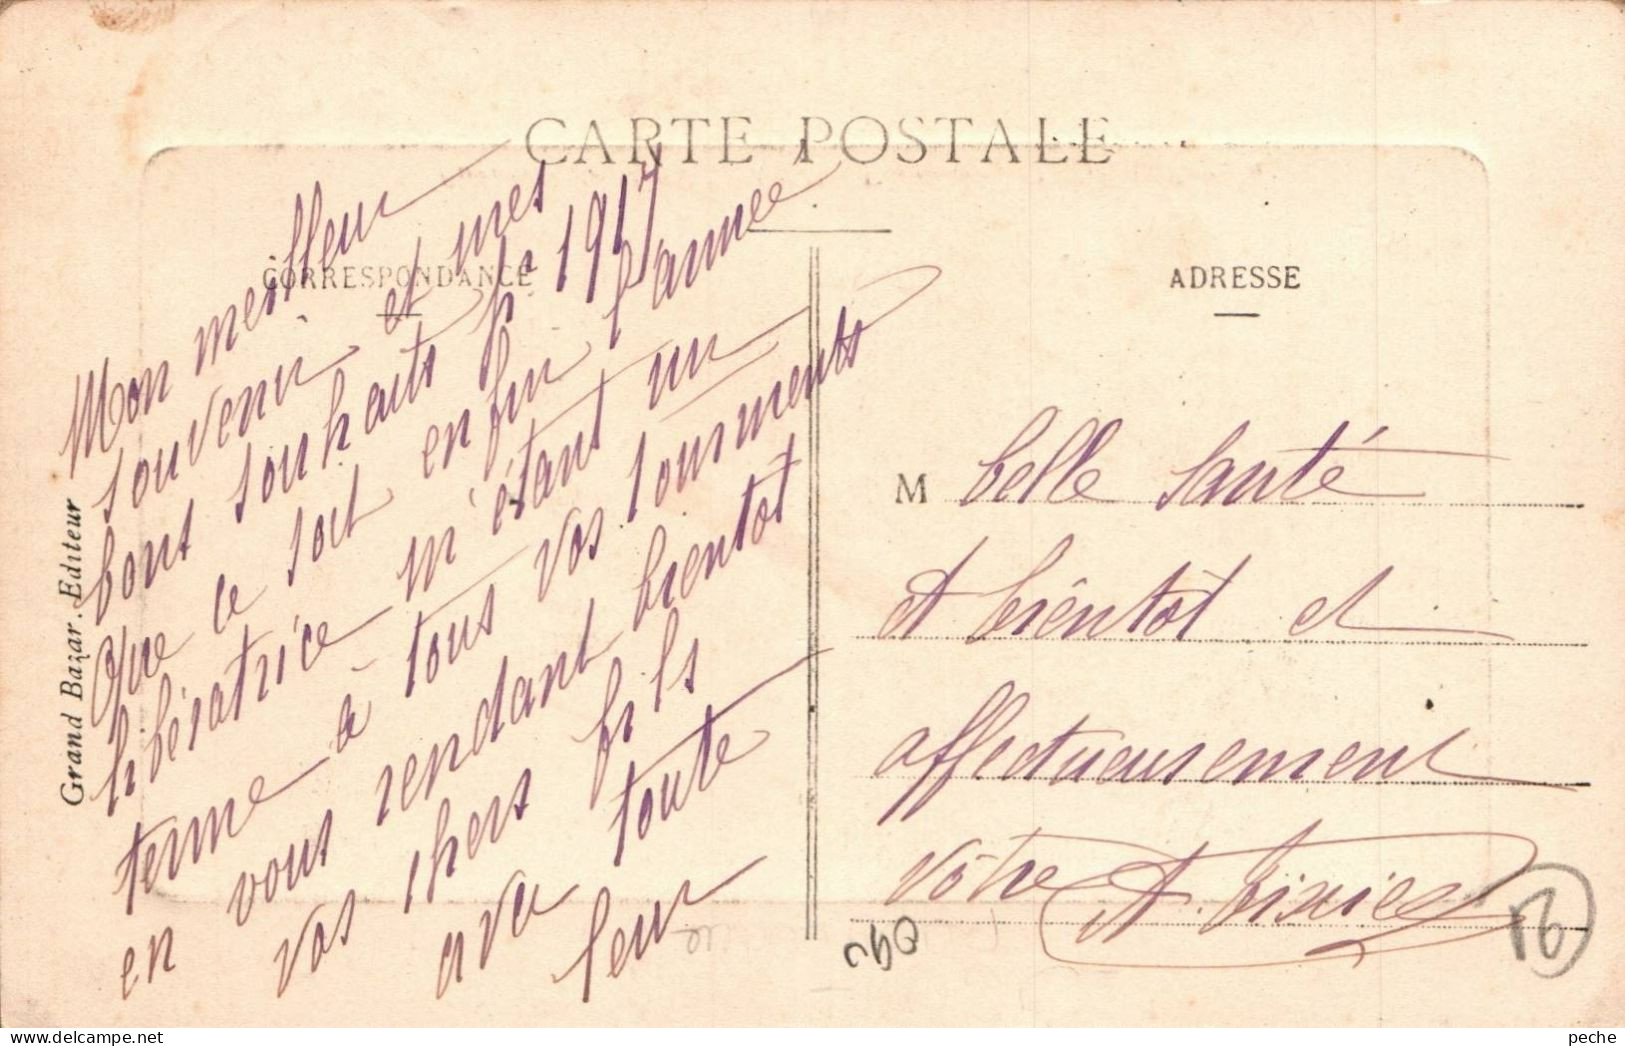 CARTE POSTALE
CORRESPONDANCE
ADRESSE
Grand Bazar. Editeur
Mon meilleur
souvenir et mes
bons souhaits pr 1917
Que ce soit enfin l'année
libératrice m'étant un
terme à tous vos tourments
en vous rendant bientôt
vos chers fils
avec toute
leur
M belle santé
et bientôt et
affectueusement
vôtre
peche